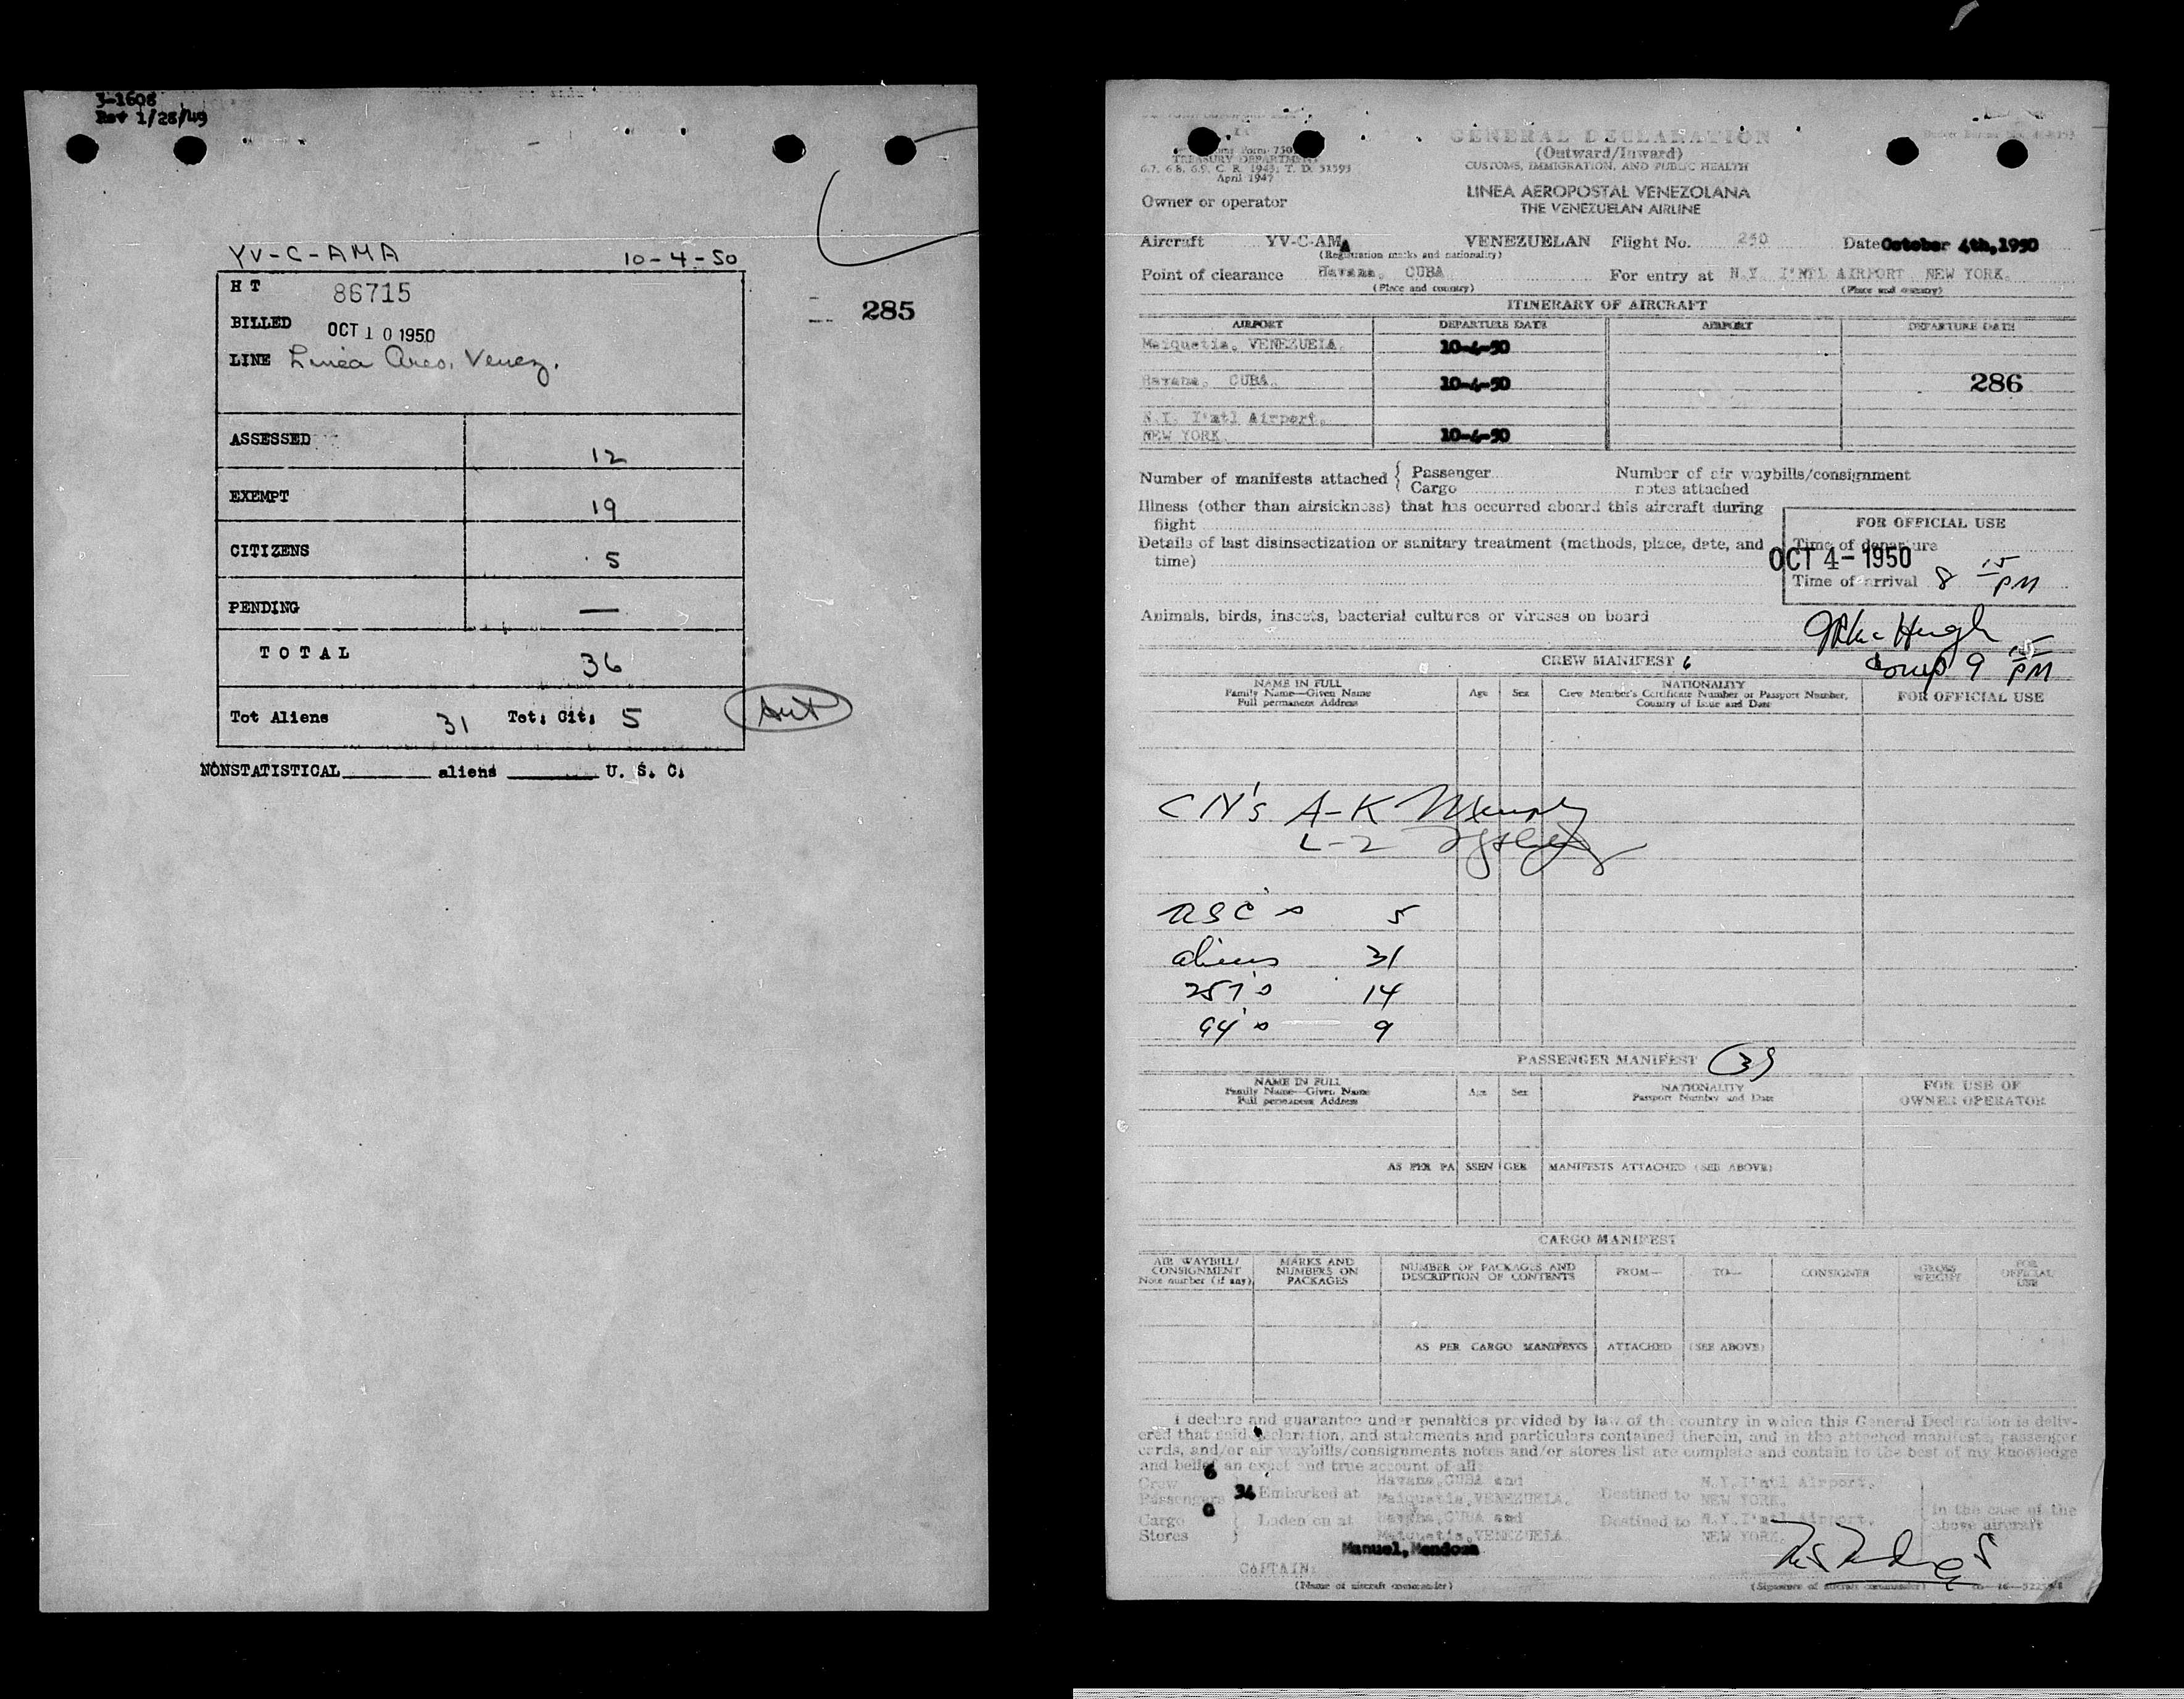 3-1608
Rev 1/28/49
YV-C-AMA 10-4-50
HT 86715
BILLED OCT 10 1950
LINE Linea Areo. Venez.
285
ASSESSED 12
EXEMPT 19
CITIZENS 5
PENDING —
TOTAL 36
Tot Aliens 31 Tot. Cit. 5
NONSTATISTICAL aliens U. S. C.
GENERAL DECLARATION
(Outward/Inward)
CUSTOMS, IMMIGRATION, AND PUBLIC HEALTH
TREASURY DEPARTMENT
6.7, 6.8, 6.9, C. R. 1943; T. D. 51593
April 1947
LINEA AEROPOSTAL VENEZOLANA
THE VENEZUELAN AIRLINE
Owner or operator
Aircraft YV-C-AMA VENEZUELAN Flight No. 250 Date October 4th, 1950
(Registration marks and nationality)
Point of clearance Havana, CUBA For entry at N.Y. I'NTL AIRPORT NEW YORK.
(Place and country) (Place and country)
ITINERARY OF AIRCRAFT
AIRPORT DEPARTURE DATE AIRPORT DEPARTURE DATE
Maiquetia, VENEZUELA. 10-4-50
Havana, CUBA. 10-4-50
286
N.Y. I'ntl Airport.
NEW YORK. 10-4-50
Number of manifests attached { Passenger
Cargo
Number of air waybills/consignment
notes attached
Illness (other than airsickness) that has occurred aboard this aircraft during
flight
Details of last disinsectization or sanitary treatment (methods, place, date, and
time)
FOR OFFICIAL USE
Time of departure
OCT 4 - 1950
Time of arrival 8 15 PM
Animals, birds, insects, bacterial cultures or viruses on board
Comp 9 15 PM
CREW MANIFEST 6
NAME IN FULL
Family Name—Given Name
Full permanent Address
Age Sex
NATIONALITY
Crew Member's Certificate Number or Passport Number,
Country of Issue and Date
FOR OFFICIAL USE
CN's A-K
USC's 5
aliens 31
257's 14
94's 9
PASSENGER MANIFEST
NAME IN FULL
Family Name—Given Name
Full permanent Address
Age Sex
NATIONALITY
Passport Number and Date
FOR USE OF
OWNER OPERATOR
AS PER PASSENGER MANIFESTS ATTACHED (SEE ABOVE)
CARGO MANIFEST
AIR WAYBILL/
CONSIGNMENT
Note number (if any)
MARKS AND
NUMBERS ON
PACKAGES
NUMBER OF PACKAGES AND
DESCRIPTION OF CONTENTS
FROM— TO— CONSIGNEE
GROSS
WEIGHT
FOR
OFFICIAL
USE
AS PER CARGO MANIFESTS ATTACHED (SEE ABOVE)
I declare and guarantee under penalties provided by law of the country in which this General Declaration is deliv-
ered that said declaration, and statements and particulars contained therein, and in the attached manifests, passenger
cards, and/or air waybills/consignments notes and/or stores list are complete and contain to the best of my knowledge
and belief an exact and true account of all:
Crew 6
Passengers 36 Embarked at Havana, CUBA and
Maiquetia, VENEZUELA. Destined to N.Y. I'ntl Airport.
NEW YORK.
Cargo 0
Stores
Laden on at Havana, CUBA and
Maiquetia, VENEZUELA Destined to N.Y. I'ntl Airport.
NEW YORK.
in the case of the
above aircraft
Manuel, Mendoza
CAPTAIN:
(Name of aircraft commander) (Signature of aircraft commander)